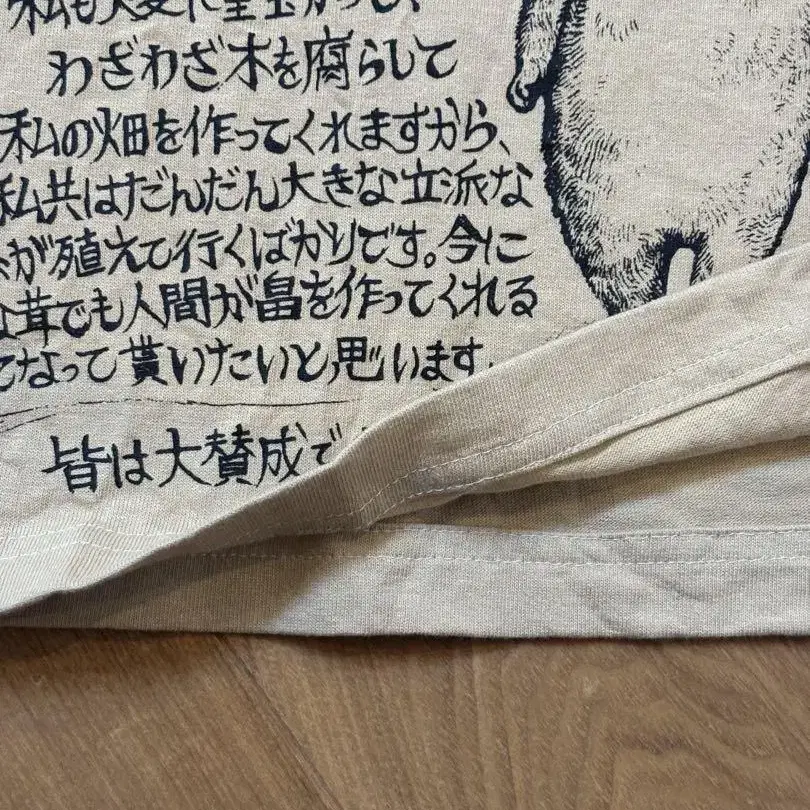 私も大変に重宝がって、
わざわざ木を腐らして
私の畑を作ってくれますから、
私共はだんだん大きな立派な
が殖えて行くばかりです。今に
な茸でも人間が畠を作ってくれる
なって貰いたいと思います。
皆は大賛成で